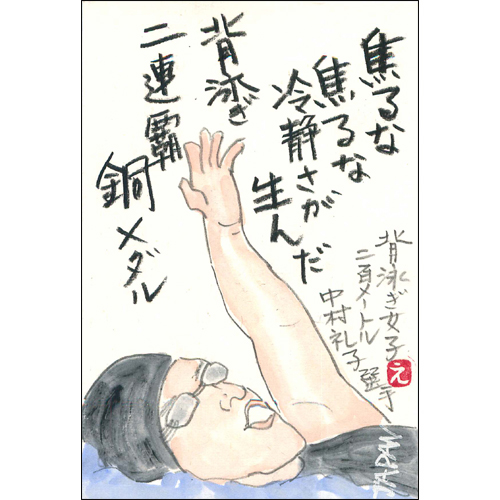 焦るな
焦るな
冷静さが
生んだ
背泳ぎ
二連覇
銅メダル
背泳ぎ女子
二百メートル
中村礼子選手
え